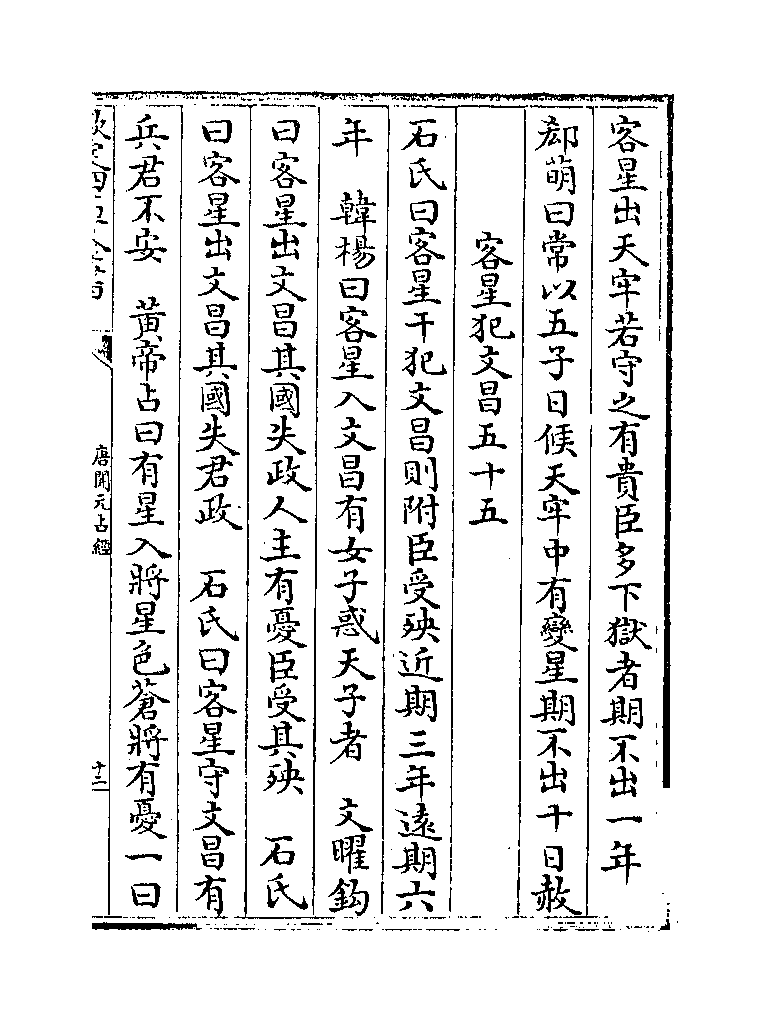 客星出天牢若守之有貴臣多下獄者期不出一年
郄萌曰常以五子日候天牢中有變星期不出十日赦
客星犯文昌五十五
石氏曰客星干犯文昌則附臣受殃近期三年遠期六
年　韓楊曰客星入文昌有女子惑天子者　文曜鈎
曰客星出文昌其國失政人主有憂臣受其殃　石氏
曰客星出文昌其國失君政　石氏曰客星守文昌有
兵君不安　黄帝占曰有星入將星色蒼將有憂一曰
欽定四庫全書
唐開元占經
十二